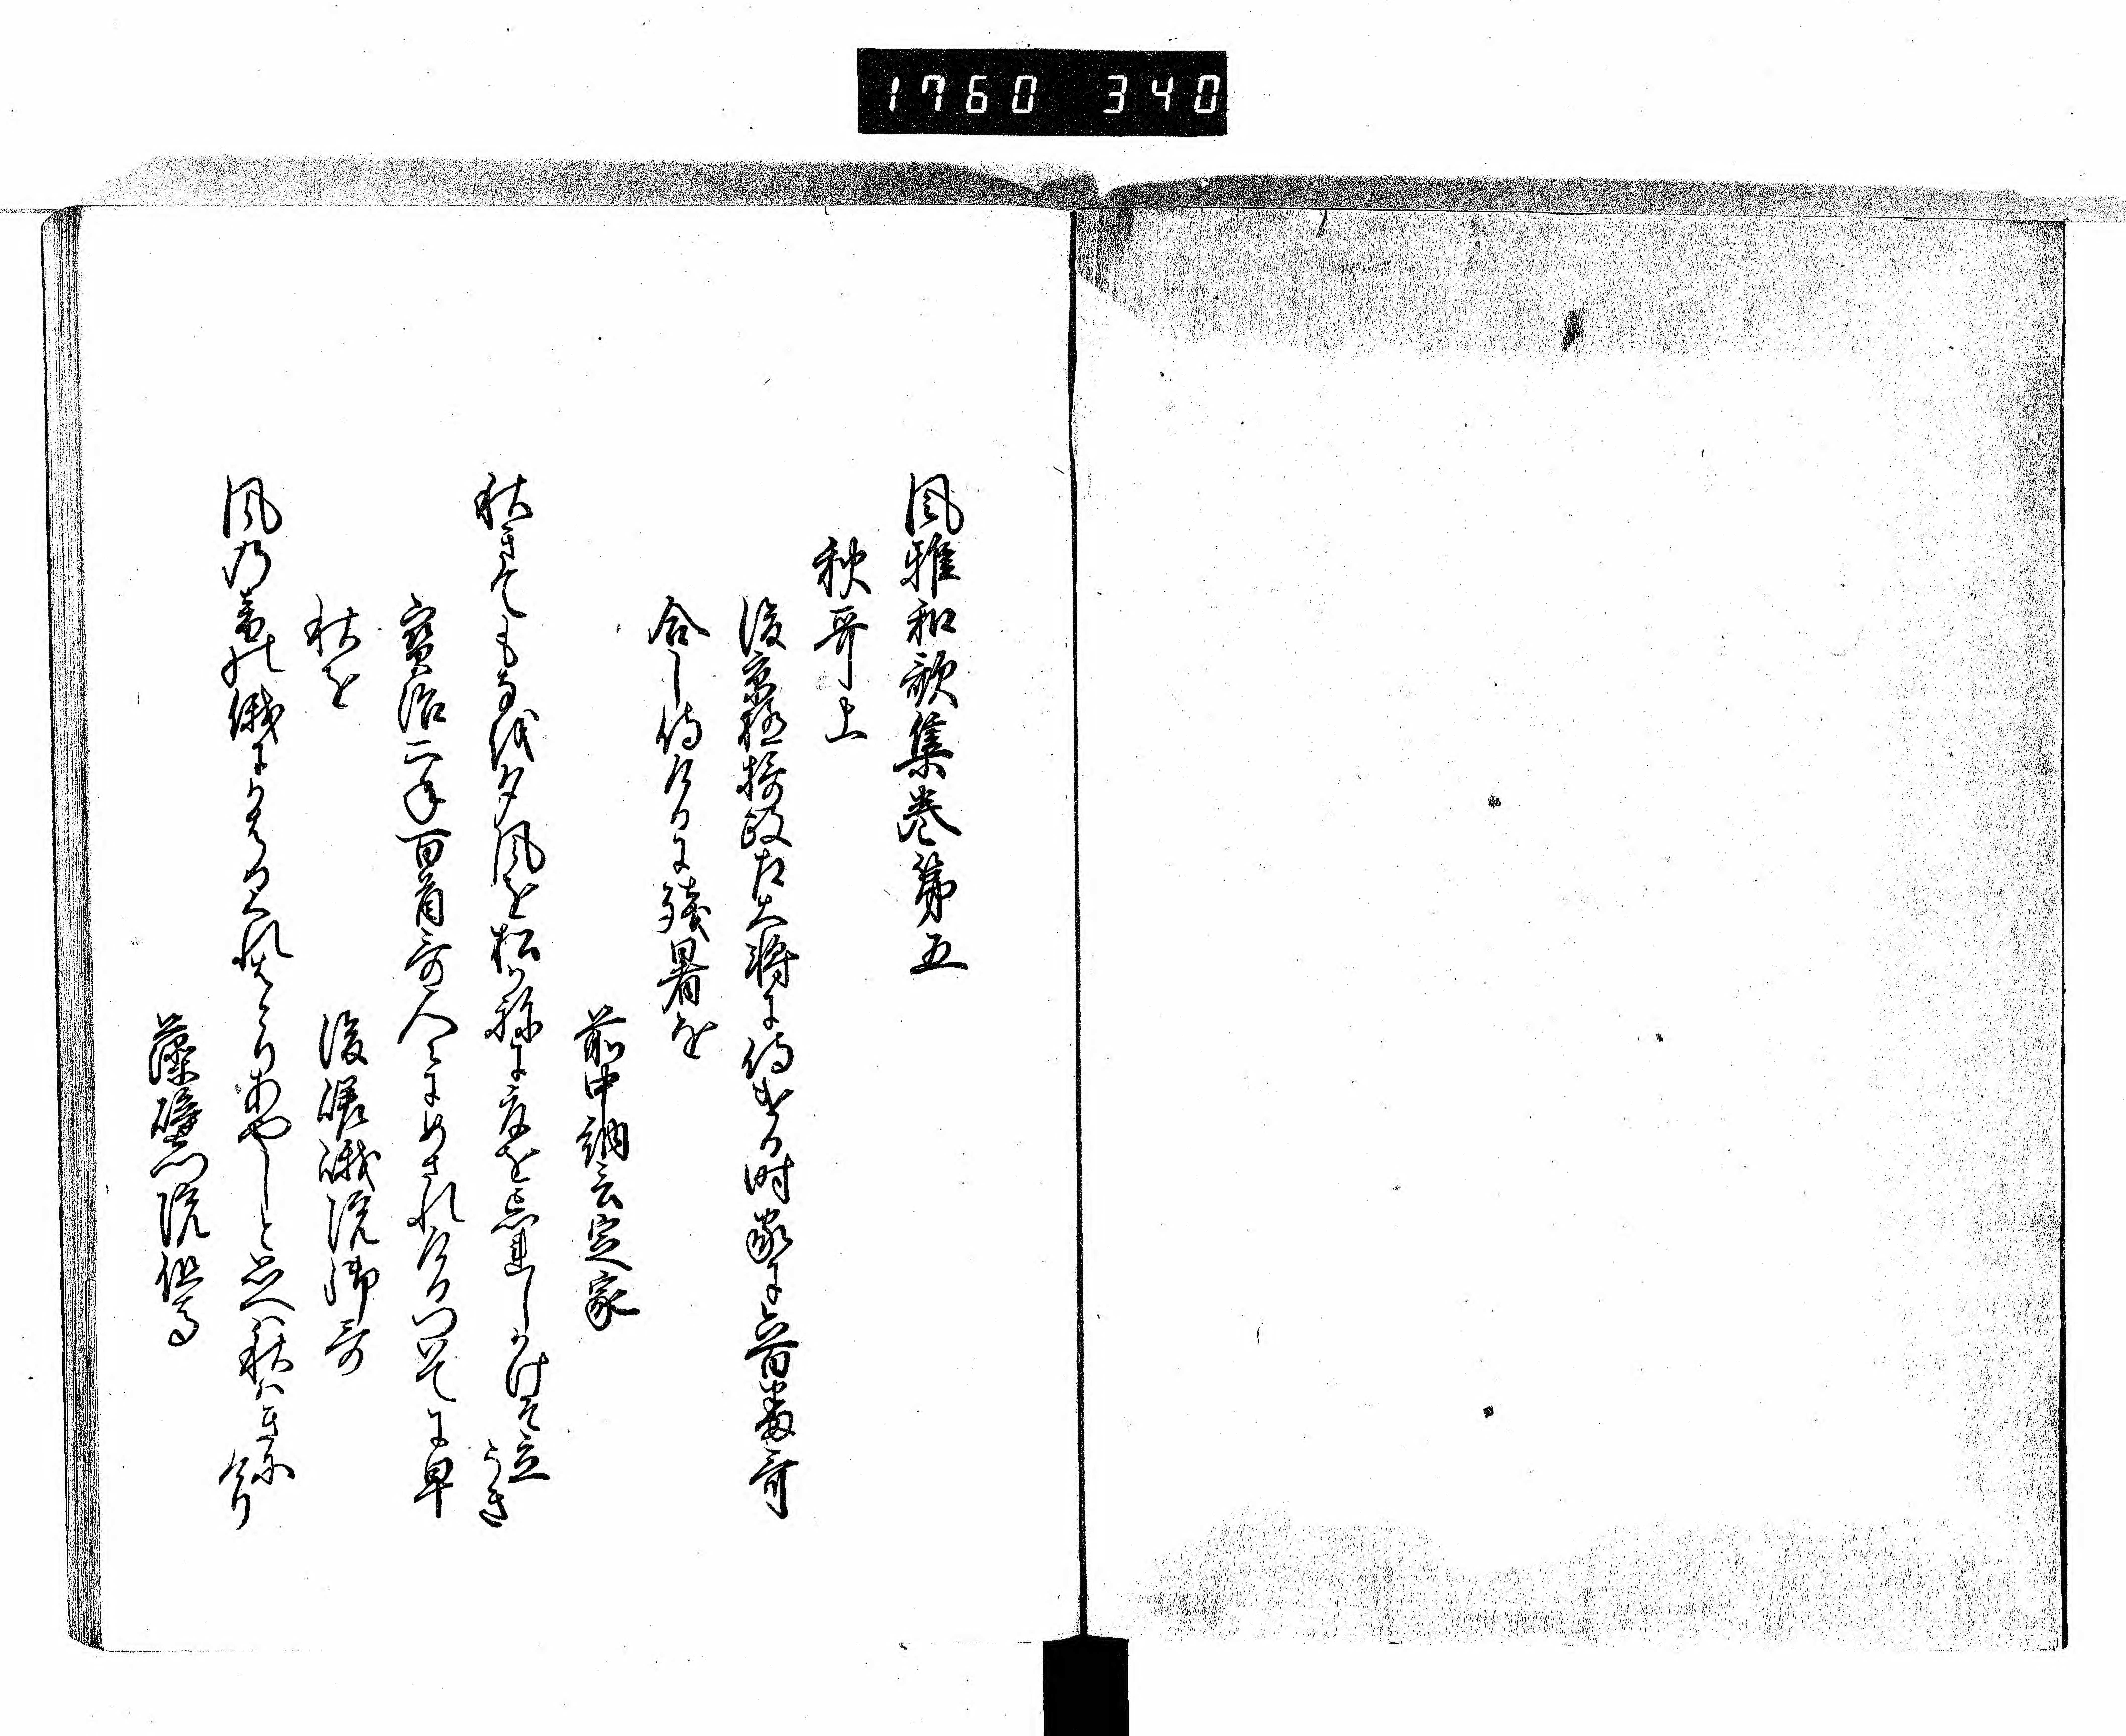 1760 340
風雅和歌集巻第五
秋哥上
後京極摂政左大将に侍ける時家に六百番哥
合し侍けるに残暑を
前中納言定家
秋きてもなを夕風を松かねに夏を忘れしかけそ立うき
寳治二年百首哥人〻にめされけるついてに早
秋を
後嵯峨院御哥
風の音の俄にかはるくれはとりあやしと思へは秋はきにけり
藻璧門院但馬